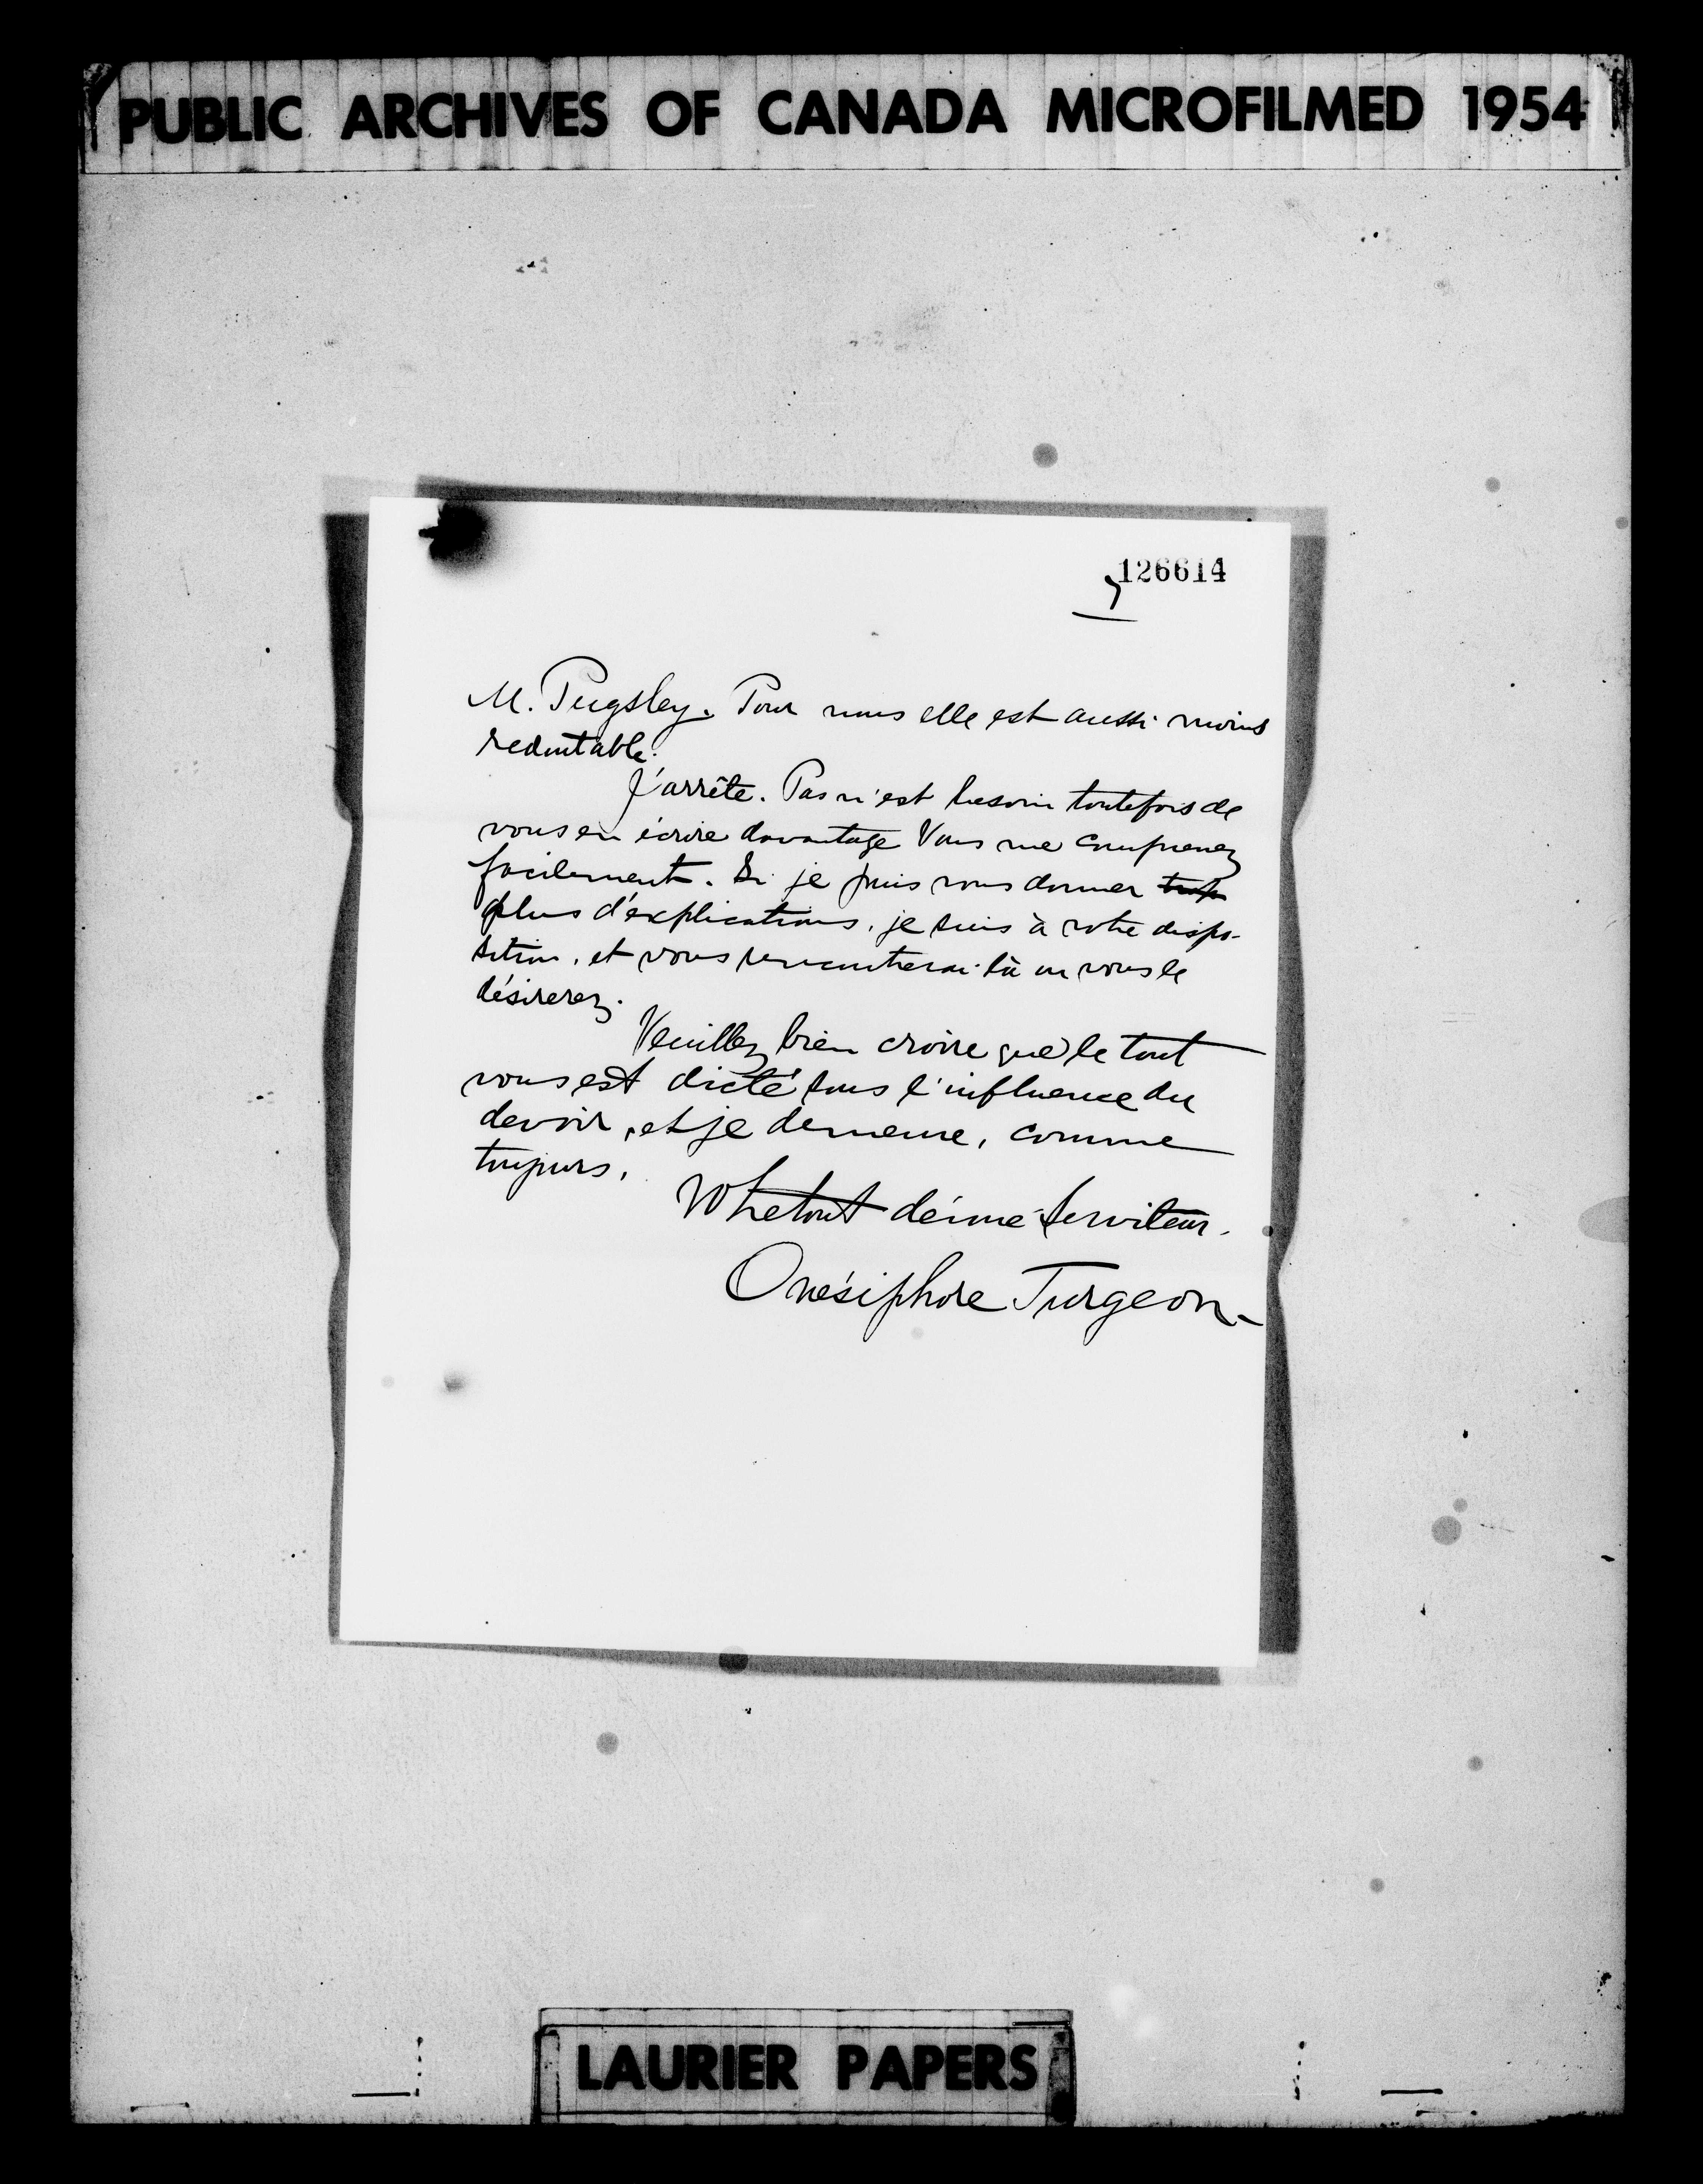 PUBLIC ARCHIVES OF CANADA MICROFILMED 1954
126614
M. Pugsley. Pour nous elle est aussi moins
redoutable.
J'arrête. Pas n'est besoin toutefois de
vous en écrire davantage Vous me comprenez
facilement. Si je puis vous donner trop
plus d'explications, je suis à votre dispo-
sition, et vous rencontrerai là où vous le
désirerez.
Veuillez bien croire que le tout
vous est dicté sous l'influence du
devoir, et je demeure, comme
toujours,
Votre tout dévoué serviteur.
Onésiphore Turgeon.
LAURIER PAPERS